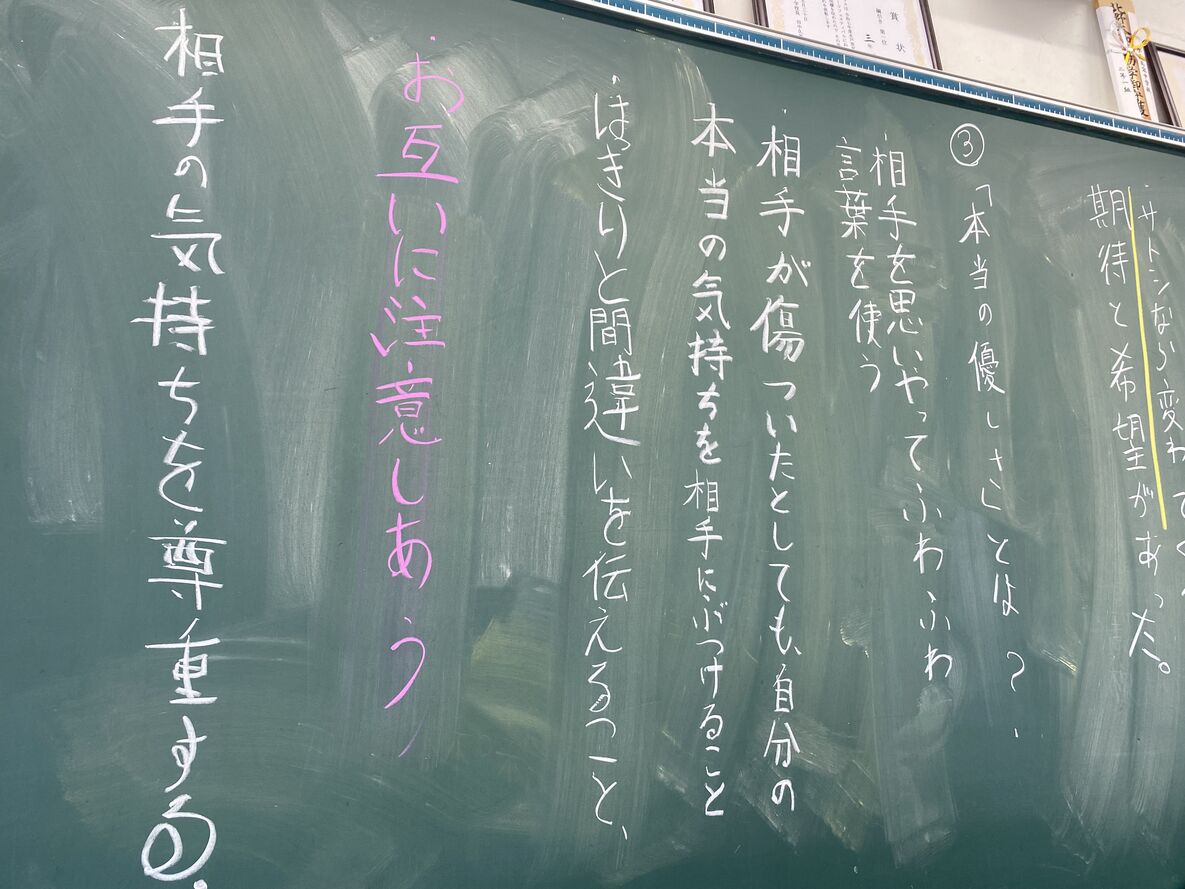 ・サトシなら変わって
期待と希望があった。
③「本当の優しさ」とは?
・相手を思いやってふわふわ
言葉を使う
・相手が傷ついたとしても、自分の
本当の気持ちを相手にぶつけること
・はっきりと間違いを伝えること、
・お互いに注意しあう
相手の気持ちを尊重する。
賞状
三年